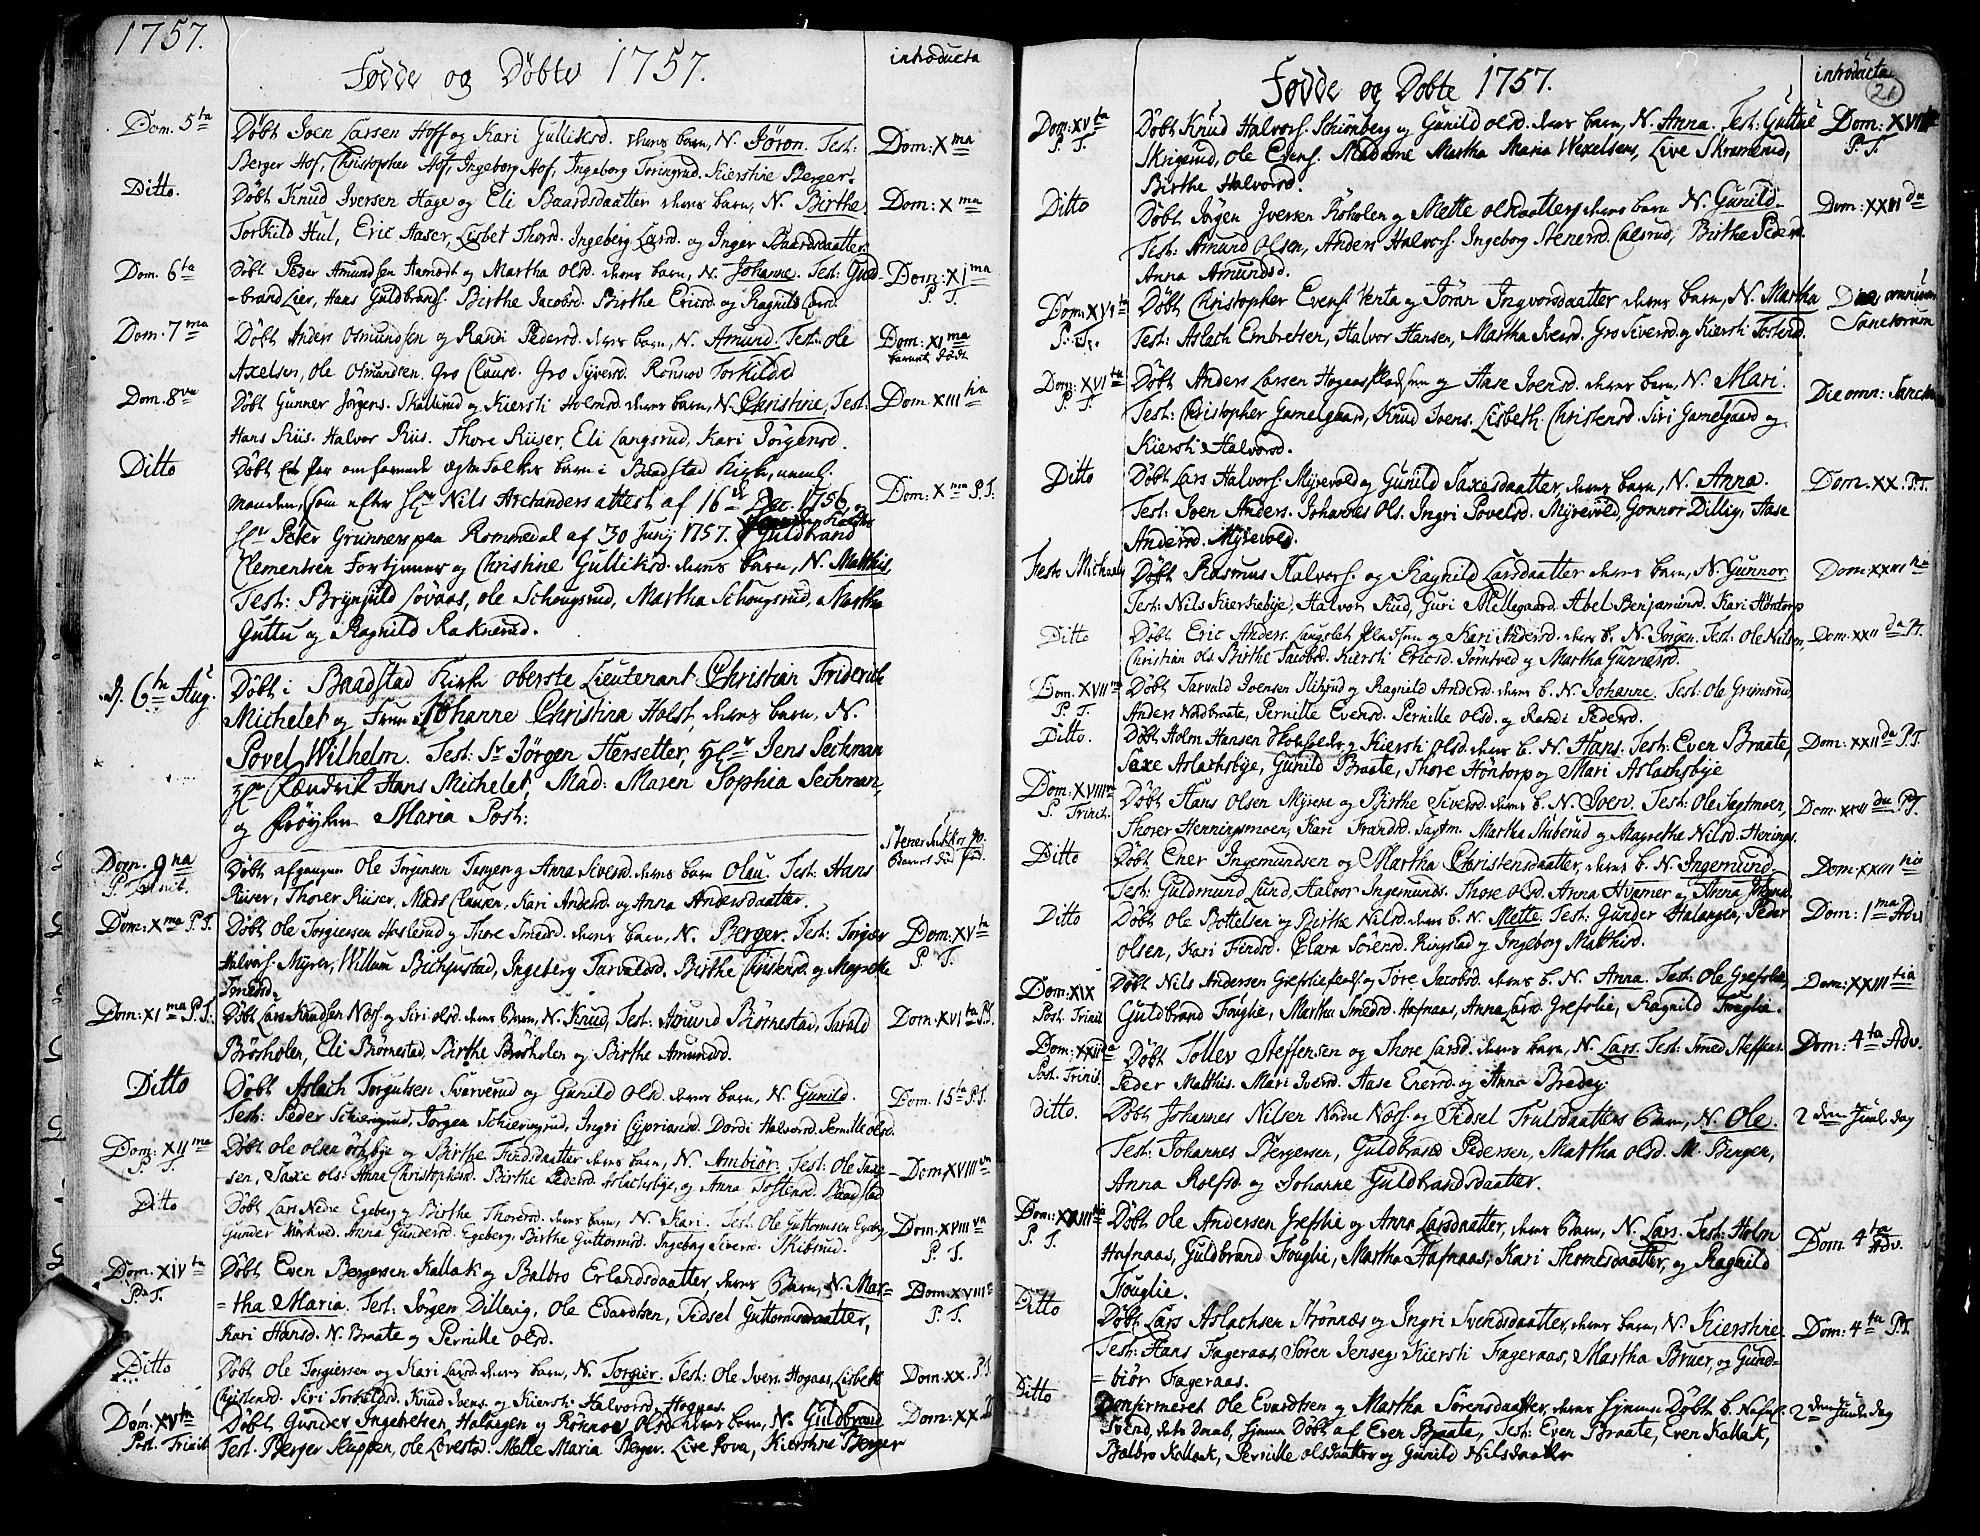 1757.
Fødde og Døbte 1757.
introducta
Dom. 5ta
Døbt Joen Larsen Hoff og Kari Gulliksd. deres barn, N. Jøron. Test:
Dom: Xma
Berger Hof, Christopher Hof, Ingeborg Hof, Ingeborg Toringrud. Kierstine Berger.
Ditto.
Døbt Knud Iversen Hage og Eli Baardsdaatter deres barn, N. Birthe.
Dom: Xma
Torkild Hul, Eric Haser, Lisbet Thorsd. Ingeberg Larsd. og Inger Baardsdaatter
Dom. 6ta
Døbt Peder Amundsen Aamodt og Martha Olsd. deres barn, N. Johanne. Test: Guld
Dom: XIma
P. T.
-brand Lier, Hans Guldbrands. Birthe Jacobsd. Birthe Ericsd. og Ragnild Larsd.
Dom. 7ma
Døbt Anders Osmundsen og Randi Pedersd. deres barn, N. Amund. Test: Ole
Dom: XIma
barnet dødt
Axelsen, Ole Osmundsen, Gro Clausd. Gro Syversd. Rønnov Torkildsd
Dom. 8va
Døbt Gunner Jørgens. Skallerud og Kiersti Holmsd. deres barn, N. Christine, Test:
Dom: XIIItia
Hans Riis. Halvor Riis. Thore Riiser, Eli Langsrud, Kari Jørgensd.
Ditto
Døbt Et par omfarende ægte Folkes barn i Baadstad Kirke, neml:
Dom: Xma P. T.
manden, som efter Hr Nils Arctanders attest af 16de Dec. 1756,
Hr Peter Grunners paa Rommedal af 30 Junij 1757. Guldbrand
Clementsen Fortjenner og Christine Gulliksd. deres barn, N. Matthis,
Test: Brynjuld Lövaas, Ole Schougsrud, Martha Schougsrud, Martha
Guttu og Ragnild Raknerud.
d. 6te Aug.
Døbt i Baadstad Kirke oberste Lieutenant Christian Friderich
Michelet og Frue Johanne Christina Holst, deres barn, N.
Povel Wilhelm. Test: Sr Jørgen Hersetter, Hr Jens Sechman
Hr Fændrik Hans Michelet, Mad: Maren Sophia Sechman,
og frøyken Maria Post:
Dom. 9na
P. Trinit.
Døbt afgangen Ole Jørgensen og Anna Siversd. deres barn Olau. Test: Hans
Riiser, Thorer Riiser, Mads Clausen, Kari Andersd. og Anna Andersdaatter.
Dom: Xma P. T.
Døbt Ole Torgiersen Haslerud og Thore Smedsd. deres barn, N. Berger. Test: Torgier
Dom: XVta
P. T.
Halvors. Myrer, Willum Bichjustad, Ingeberg Tarvaldsd. Birthe Christensd. og Magrethe
Smedsd.
Dom: XIma P. T.
Døbt Lars Knudsen Næs og Siri Olsd. deres Barn, N. Knud, Test: Amund Biørnestad, Tarald
Dom: XVIta P. T.
Brøsholen, Eli Biørnestad, Birthe Brøsholen og Birthe Amundsd.
Ditto
Døbt Aslach Torgutsen Svarverud og Gunild Olsd. deres barn, N. Gunild.
Dom. 15ta P. T.
Test: Peder Schierigrud, Jørgen Schierigrud, Ingri Cypriansd. Dordi Halvorsd. Pernille Olsd.
Dom: XIIma
P. T.
Døbt Ole Olsen Ørebye og Birthe Findsdaatter deres barn, N. Ambiør. Test: Ole Saxe-
Dom: XVIIIva
sen, Saxe Ols. Anna Christophersd. Birthe Pedersd. Aslachsbye, og Anna Tostensd. Baadstad
Ditto
Døbt Lars Nedre Egeberg og Birthe Thordsd. deres barn, N. Kari. Test: Ole Guttormsen Egeberg
Dom: XVIIIva
P. T.
Gunder Mørkved. Anna Gundersd. Egeberg, Birthe Guttormsd. Ingebor Siversd. Skibsrud.
Dom: XIVta
P. T.
Døbt Even Bergersen Kallak og Balbro Erlandsdaatter, deres Barn, N. Mar=
Dom: XVIII
P. T.
=tha Maria. Test: Jørgen Dillevig, Ole Evardsen, Sidsel Guttormsdaatter,
Kari Hansd. N. Braate og Pernille Olsd.
Ditto
Døbt Ole Torgiersen og Kari Larsd. deres barn, N. Torgier. Test: Ole Ivers. Hogaas, Lisbeth
Dom: XX. P. T.
Christensd. Siri Torkildsd. Knud Joens. og Kiersti Halvorsd. Hogaas.
Dom: XVta
Post. Trinit
Døbt Gunder Ingebretsen Halangen og Rønnov Olsd. deres barn, N. Guldbrand
Dom: XX
Test: Berger Kuppen, Ole Lövestad. Mette Maria Berger. Live Sova, Kierstine Berger
Fødde og Døbte 1757.
introducta
21
Dom: XVta
P. T.
Døbt Knud Halvors. Schiønberg og Gunild Olsd. deres barn, N. Anna. Test: Guttul
Dom: XVIII
P. T.
Skrigerud, Ole Evens. Madame Martha Maria Wexelsen, Live Skramrud,
Birthe Halvorsd.
Ditto
Døbt Jørgen Iversen Røholen og Mette Olsdaatter, deres barn N. Gunild.
Dom: XXIIda
Test: Amund Olsen, Anders Halvors. Ingeborg Stenersd. Calsrud, Birthe Pedersd.
Anna Amundsd.
Dom: XVIta
P. Tr.
Døbt Christopher Evens. Venta og Jöran Ingvorsdaatter deres barn, N. Martha
Dies omnium
Sanctorum
Test: Aslach Embretsen, Halvor Hansen, Martha Ivarsd. Gro Siversd. og Kiersti Tostensd.
Dom: XVIta
P. T.
Døbt Anders Larsen Hogaas pladsen og Aase Joensd. deres barn, N. Mari.
Die omn: Sanct
Test: Christopher Gamelgaard, Knud Joens. Lisbeth Christensd. Siri Gamelgaard og
Kiersti Halvorsd.
Ditto
Døbt Lars Halvors. Myrevold og Gunild Saxesdaatter, deres barn, N. Anna.
Dom. XX. P. T.
Test: Joen Anders. Johannes Ols. Ingri Povelsd. Myrevold, Gonnor Dillevig, Aase
Andersd. Myrevold.
Fest: Michael
Døbt Rasmus Halvors. og Ragnild Larsdaatter deres barn, N. Gunnor
Dom: XXIII tia
Test: Nils Kierkebye, Halvor Rud, Guri Mellegaard. Abel Benjaminsd. Kari Höntorp
Ditto
Døbt Eric Anders. Langslet pladsen og Kari Andersd. deres b. N. Jörgen. Test: Ole Nilsen,
Dom: XXII da P. T.
Christian Ols. Birthe Jacobsd. Kiersti Ericsd. Jørntved og Martha Gunnersd.
Dom. XVIIma
P. T.
Døbt Tarvald Joensen Slitsrud og Ragnild Andersd. deres b. N. Johanne. Test: Ole Grimsrud
Anders Nordbraate, Pernille Evensd. Pernille Olsd. og Randi Pedersd.
Ditto.
Døbt Holm Hansen Holefelde og Kiersti Olsd. deres b. N. Hans. Test: Even Braate,
Dom: XXIIda P. T.
Saxe Aslachsbye, Gunild Braate, Thore Höntorp og Mari Aslachsbye
Dom: XVIIIva
P. Trinit.
Døbt Hans Olsen Myrene og Birthe Siversd. deres b. N. Iver. Test: Ole Sagtmoen,
Dom: XXII da P. T.
Thorer Henningsmoen, Kari Frandsd. Sagtm. Martha Stuberud og Magrethe Nilsd. Hennings.
Ditto
Døbt Ener Ingemundsen og Martha Christensdaatter, deres b. N. Ingemund.
Dom: XXIII tia
Test: Guldmund Lund, Halvor Ingemunds. Thore Olsd. Anna Hvamer og Anna
Ditto
Døbt Ole Bottelsen og Birthe Nilsd. deres b. N. Mette. Test: Gunder Halangen, Peder
Dom: 1ma Adv
Olsen, Kari Findsd. Clara Sørensd. Ringstad og Ingeborg Matthisd.
Dom: XIX
Post. Trinit
Døbt Nils Andersen Grefslie pladsen og Tore Jacobsd. deres b. N. Anna. Test: Ole Grefslie,
Dom: XXIII tia
Guldbrand Fouglie, Martha Smedsd. Hafnaas, Anna Larsd. Grefslie, Ragnild Fouglie.
Dom: XXIIda
Post. Trinit.
Døbt Tollev Steffensen og Thore Larsd. deres barn, N. Lars. Test: Smed Steffens.
Dom: 4ta Adv.
Peder Matthis. Mari Iversd. Aase Enersd. og Anna Bredey.
Ditto.
Døbt Johannes Nilsen Nedre Næss og Sidsel Trulsdaatters Barn, N. Ole.
2den Juul. dag
Test: Johannes Bergersen, Guldbrand Pedersen, Martha Olsd. M. Bergen,
Anna Rolfsd. og Johanne Guldbrandsdaatter.
Dom: XXIIItia
P. T.
Døbt Ole Andersen Grefslie og Anna Larsdaatter, deres Barn, N. Lars. Test: Holm
Dom. 4ta
Adv.
Hafnaas, Guldbrand Fouglie, Martha Hafnaas, Kari Thomesdaatter, og Ragnild
Fouglie.
Ditto
Døbt Lars Aslachsen Strønnæs og Ingri Svendsdaatter, deres barn, N. Kierstine.
Dom: 4ta P. T.
Test: Hans Fageraas, Sören Jenseg Kiersti Fageraas, Martha Bruer, og Gund=
=biör Fageraas.
Ditto
Confirmeret Ole Evardsen og Martha Sørensdaatter, deres hjemme Døbt b. Nafnl.
2den Juule dag
Svend, dets Daab, hjemme Døbt af Even Braate, Test: Even Braate, Even Kallak,
Balbro Kallak, Pernille Olsdaatter og Gunild Nilsdaatter